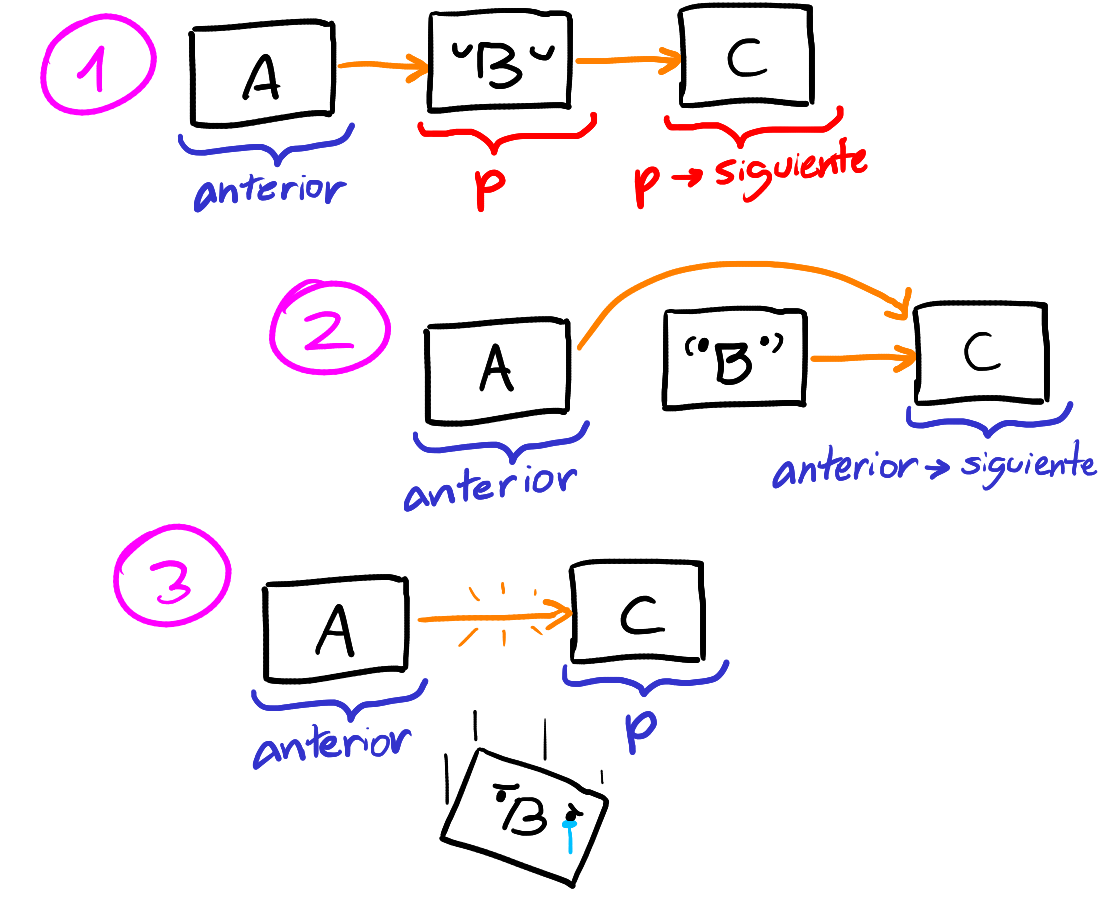 1
A "B" C
anterior p p → siguiente
2
A "B" C
anterior anterior → siguiente
3
A C
anterior p
B